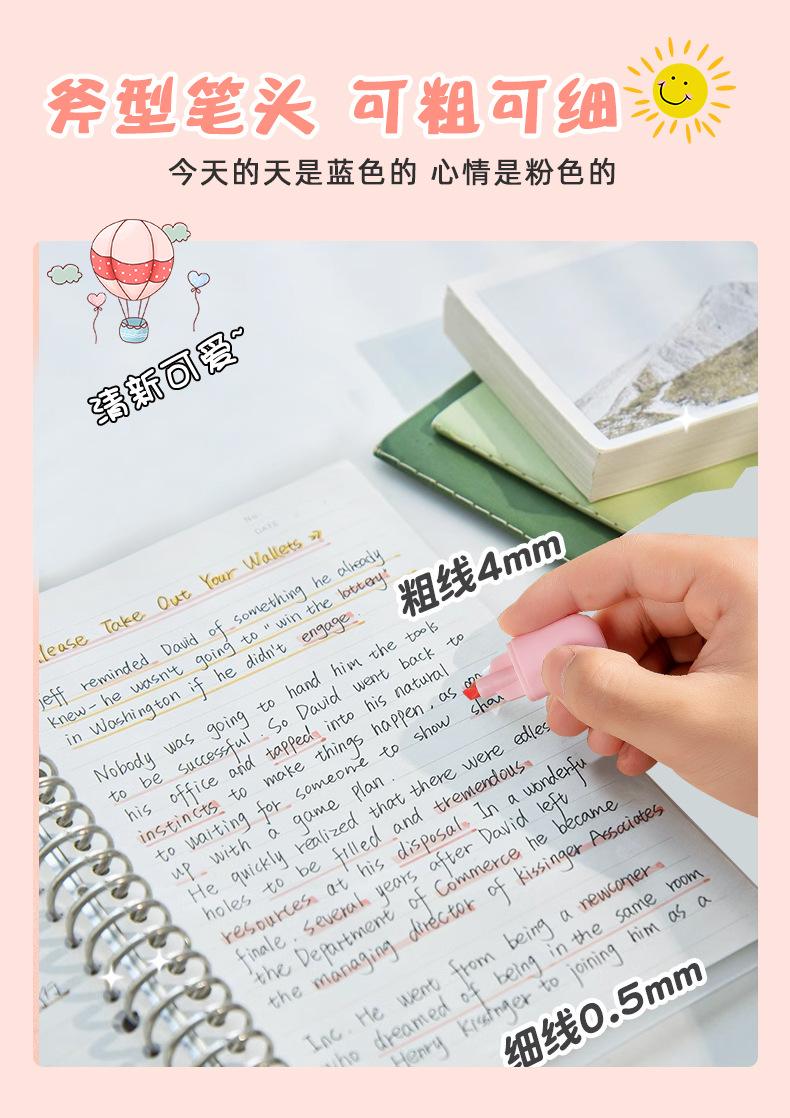 斧型笔头 可粗可细
今天的天是蓝色的 心情是粉色的
清新可爱~
No.
DATE
Please Take Out Your Wallets
Jeff reminded David of something he already
knew- he wasn't going to "win the lottery"
in Washington if he didn't engage.
Nobody was going to hand him the tools
to be successful. So David went back to
his office and tapped into his natural
instincts to make things happen, as
to waiting for someone to show
up with a game plan.
He quickly realized that there were
holes to be filled and tremendous
resources at his disposal. In a
finale. several years after David left
the Department of Commerce he became
the managing director of Kissinger Associates
Inc. He went from being a newcomer
who dreamed of being in the same room
Henry Kissinger to joining him as a
粗线4mm
细线0.5mm